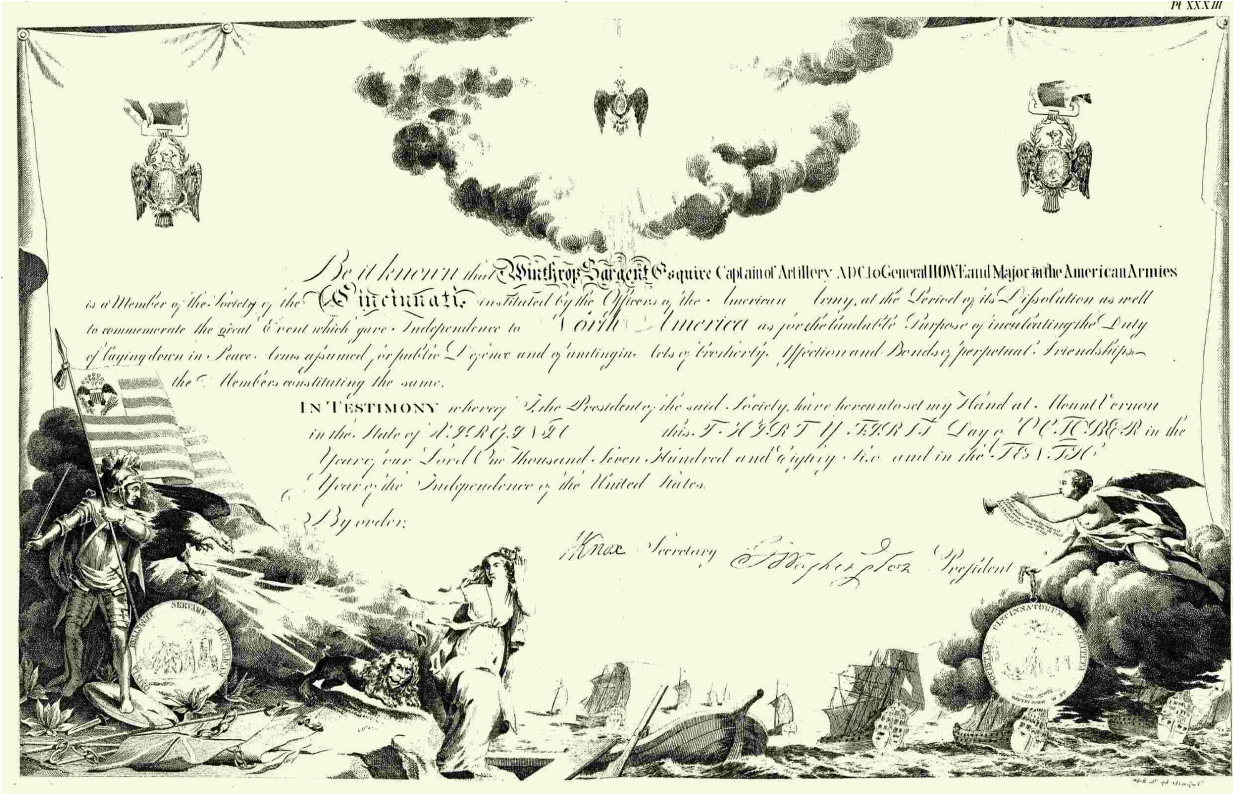 Pl XXXIII
Be it known that Winthrop Sargent Esquire Captain of Artillery ADC. to General HOWE and Major in the American Armies
is a Member of the Society of the Cincinnati, instituted by the Officers of the American Army, at the Period of its Dissolution as well
to commemorate the great Event which gave Independence to North America as for the laudable Purpose of inculcating the Duty
of laying down in Peace Arms assumed for public Defence and of uniting in Acts of brotherly Affection and Bonds of perpetual Friendship
the Members constituting the same.
IN TESTIMONY whereof I, the President of the said Society, have hereunto set my Hand at Mount Vernon
in the State of VIRGINIA this THIRTY FIRST Day of OCTOBER in the
Year of our Lord One Thousand Seven Hundred and Eighty Six and in the TENTH
Year of the Independence of the United States.
By order,
HKnox Secretary GWashington President
SERVARE
CINCINNATORUM